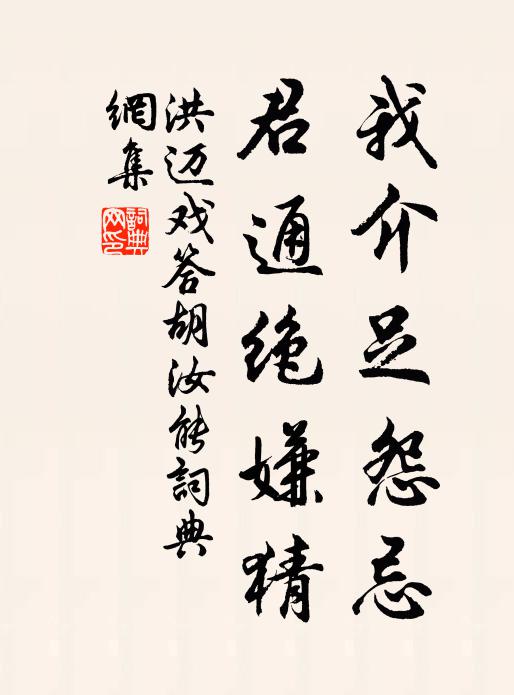 我介足怨忌
君通绝嫌猜
洪迈戏答胡汝能詞典
網集
詞典网印